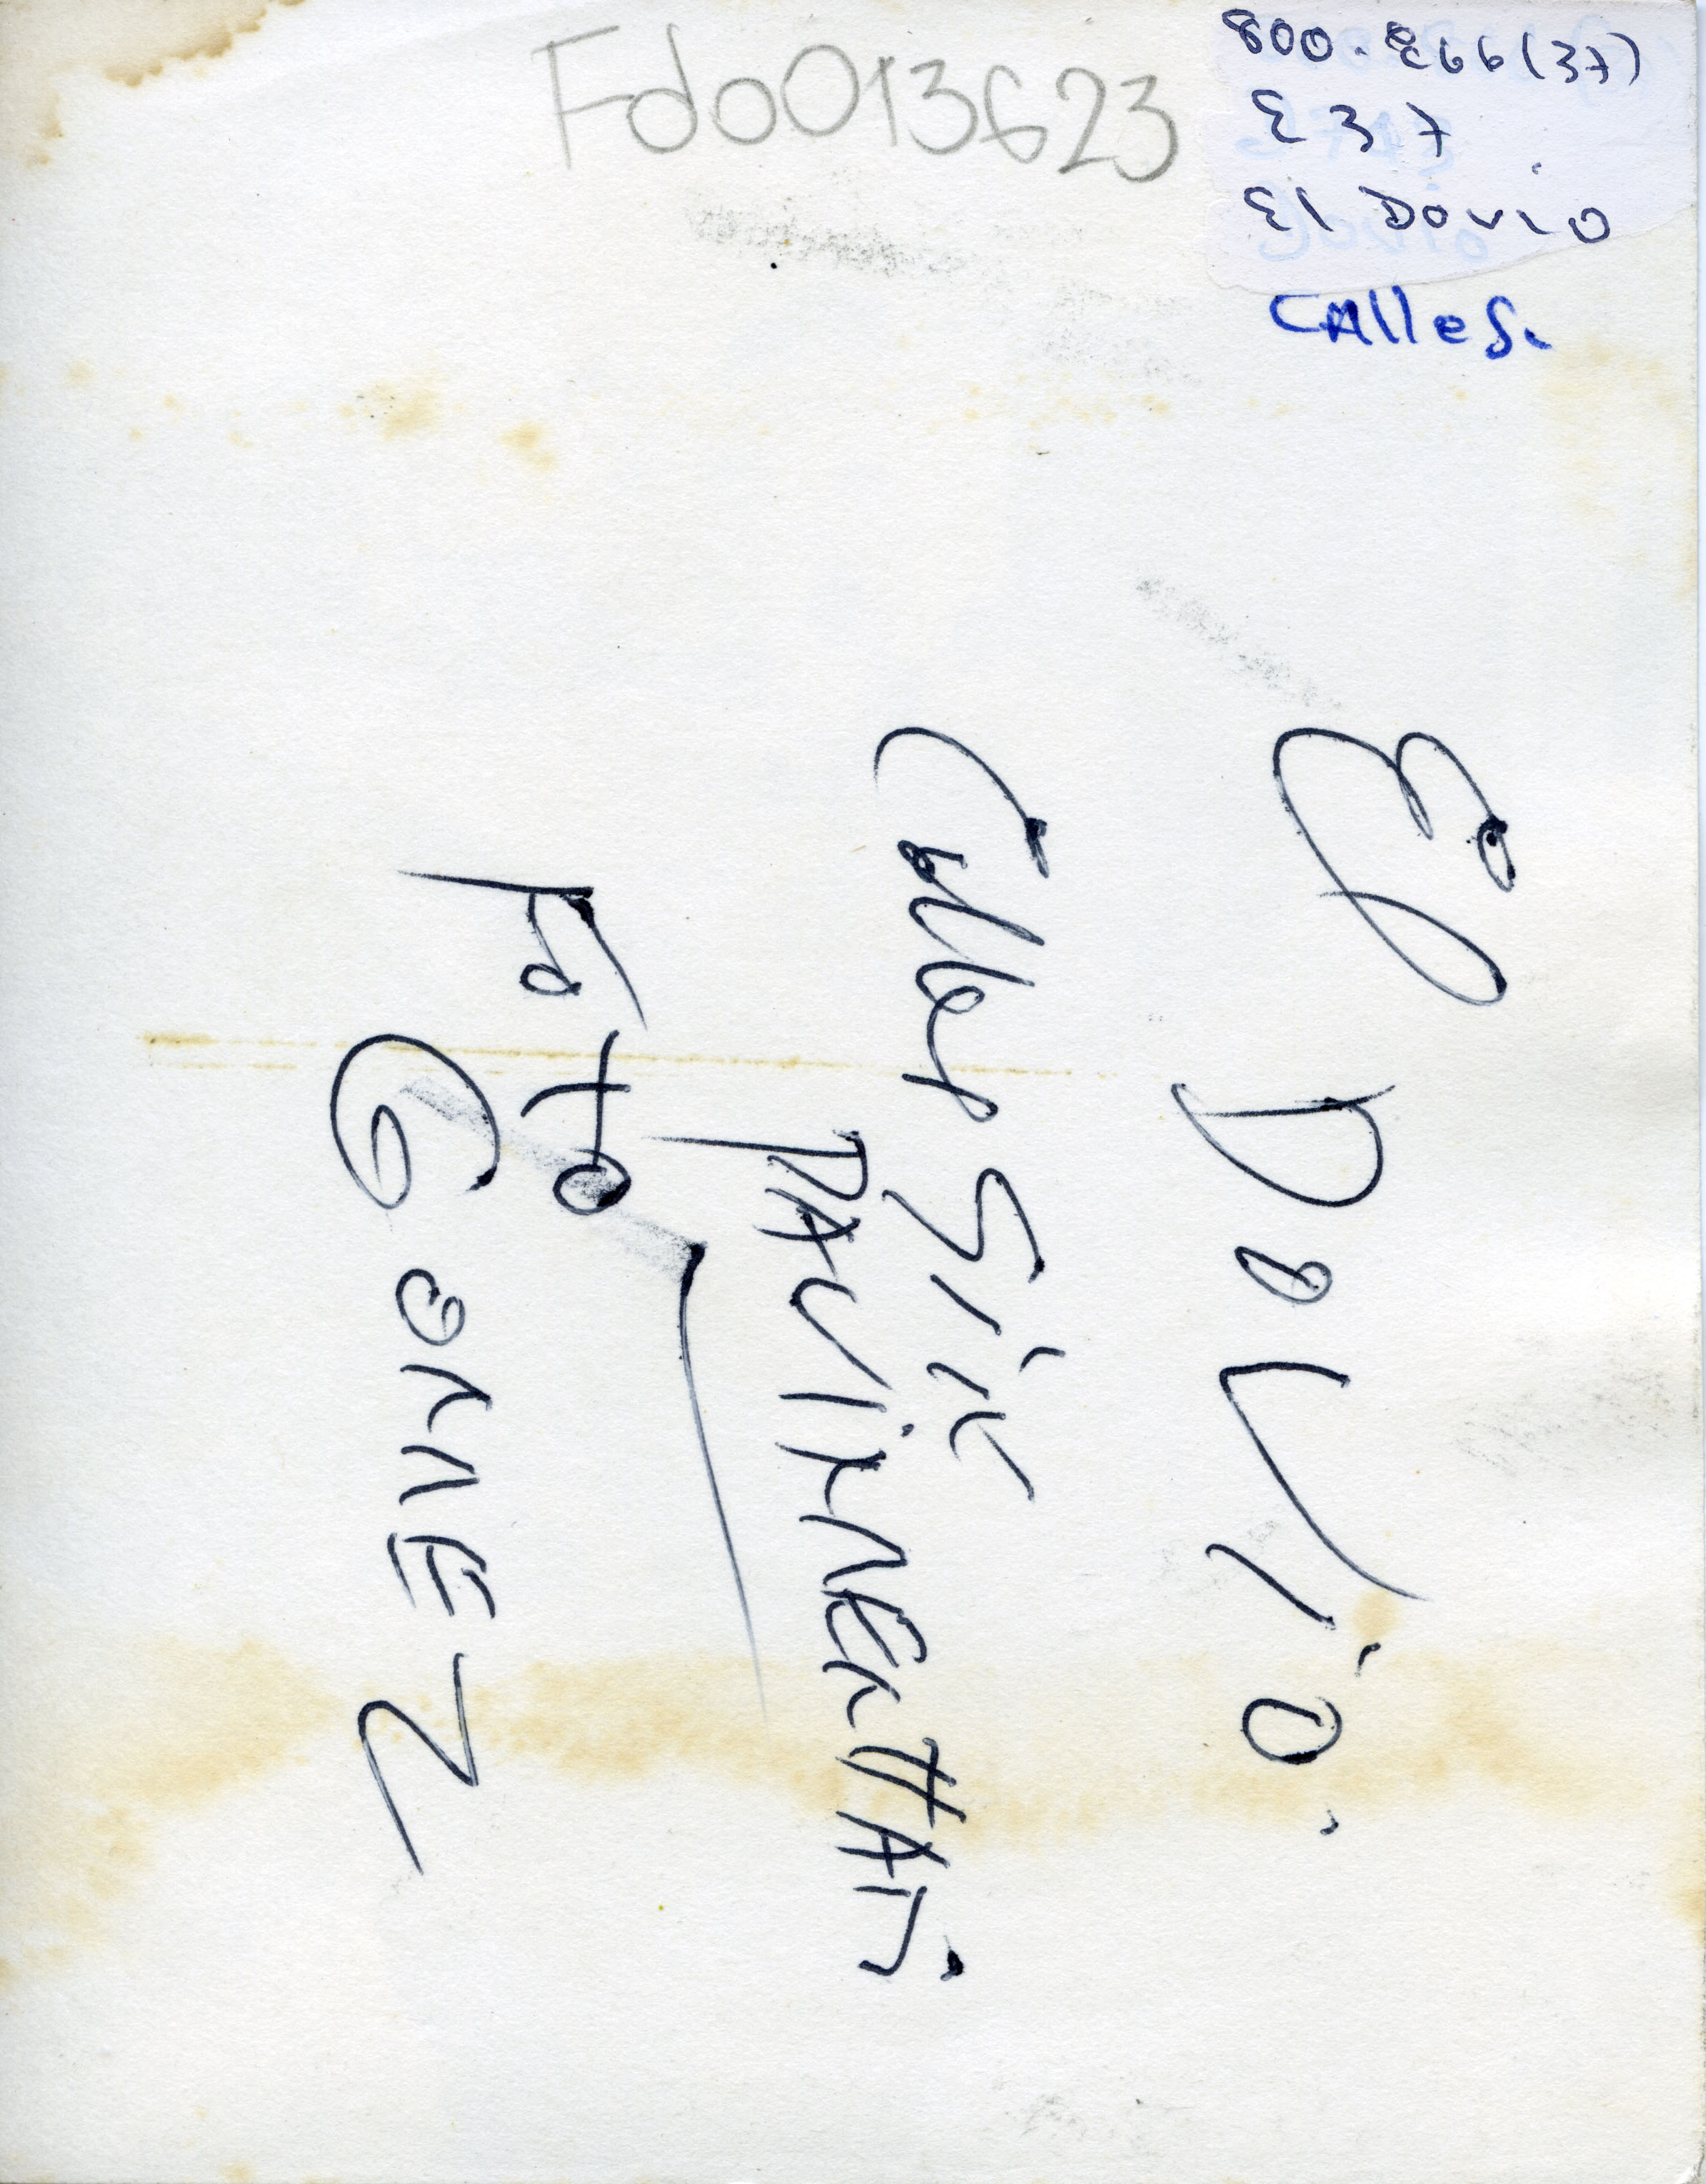 Fdo013623
800.E66(37)
E37
El Dovio
CAlles.
El DoVio.
Calles Sin
PAVimENtAR.
Foto
GomEZ